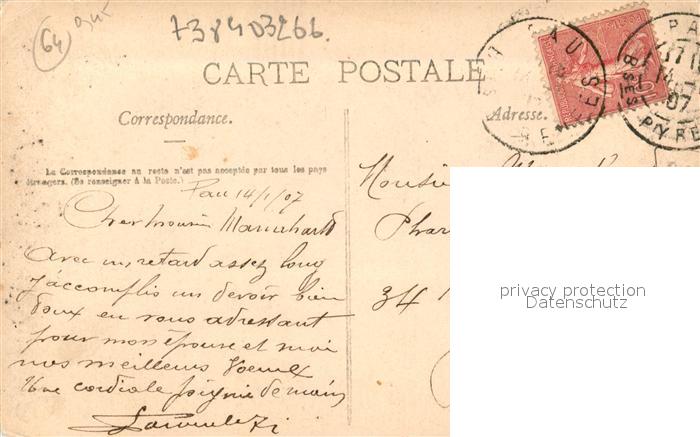 64
738403266.
PAU
BSES PYRE
CARTE POSTALE
Correspondance.
Adresse
La Correspondance au recto n'est pas acceptée par tous les pays
étrangers. (Se renseigner à la Poste.)
Pau 14/1/07
Cher Monsieur
Avec un retard assez long
j'accomplis un devoir bien
doux en vous adressant
pour mon épouse et moi
nos meilleurs Voeux
Une cordiale poignée de main
Monsie
Phar
34
privacy protection
Datenschutz